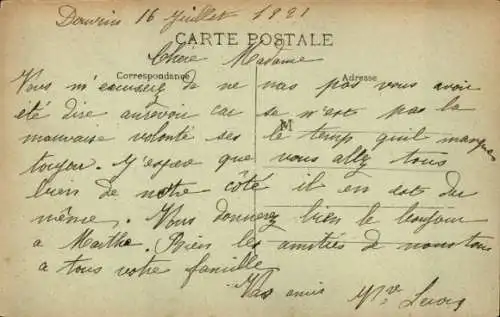 Douvrin 16 Juillet 1921
CARTE POSTALE
Chère Madame
Correspondance
Adresse
M
Vous m'excuserez de ne nas pas vous avoir
été dire aurevoir car se n'est pas la
mauvaise volonté ses le temp qu'il manque
toujou. J'espere que vous allez tous
bien de notre côté il en est du
même. Vous donnerez bien le bonjour
a Marthe. Bien les amitiés de nous tous
a tous votre famille
Vos amis Mme